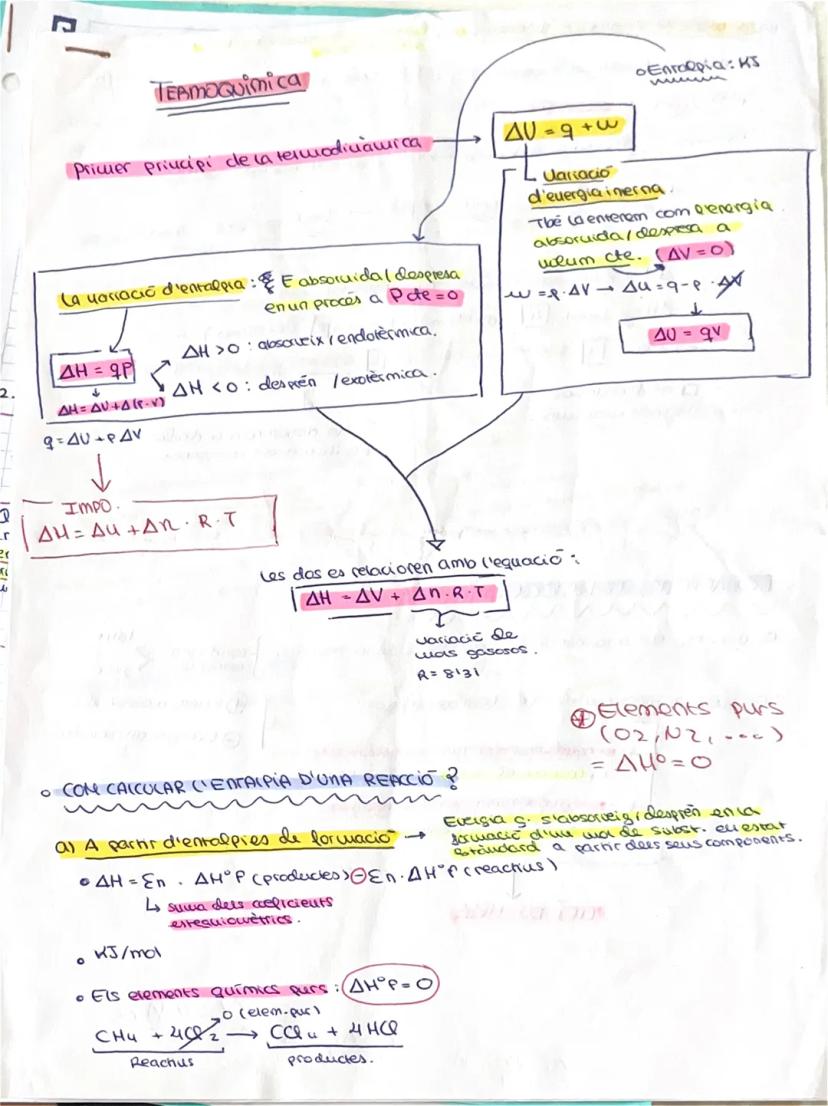 Entalpia: KJ
TERMOQUÍMICA
Primer principi de la termodinàmica
ΔU = q + w
Variació
d'energia interna.
Tbé la enterem com l'energia
absoruida / despresa a
volum cte. (ΔV = 0)
w = p · ΔV → Δu = q - p · ΔV
ΔU = qv
La variació d'entalpia: E absoruida / despresa
en un procés a P cte = 0
ΔH = qp
ΔH > 0 : absorveix / endotèrmica.
ΔH < 0 : desprèn / exotèrmica.
ΔH = ΔU + Δ(P·V)
q = ΔU + P ΔV
IMPO.
ΔH = Δu + Δn · R · T
Les dos es relacionen amb l'equació:
ΔH = ΔV + Δn · R · T
variació de
mols gasosos.
R = 8'31
Elements purs
(O2, N2, ...)
= ΔHº = 0
COM CALCULAR L'ENTALPIA D'UNA REACCIÓ?
a) A partir d'entalpies de formació → Energia q. s'absorveix / desprèn en la
formació d'un mol de subst. en estat
estàndard a partir dels seus components.
ΔH = Σn · ΔHºf (productes) - Σn · ΔHºf (reactius)
↳ suma dels coeficients
estequiomètrics.
KJ/mol
Els elements químics purs: ΔHºf = 0
0 (elem. pur)
CH4 + 4Cl2 → CCl4 + 4HCl
Reactius productes.
2.